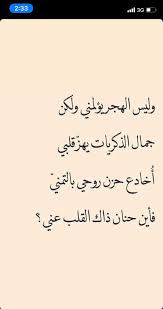 2:33
3G
وليس الهجر يؤلمني ولكن
جمال الذكريات يهزّ قلبي
أُخادع حزن روحي بالتمنيّ
فأين حنان ذاك القلب عني؟